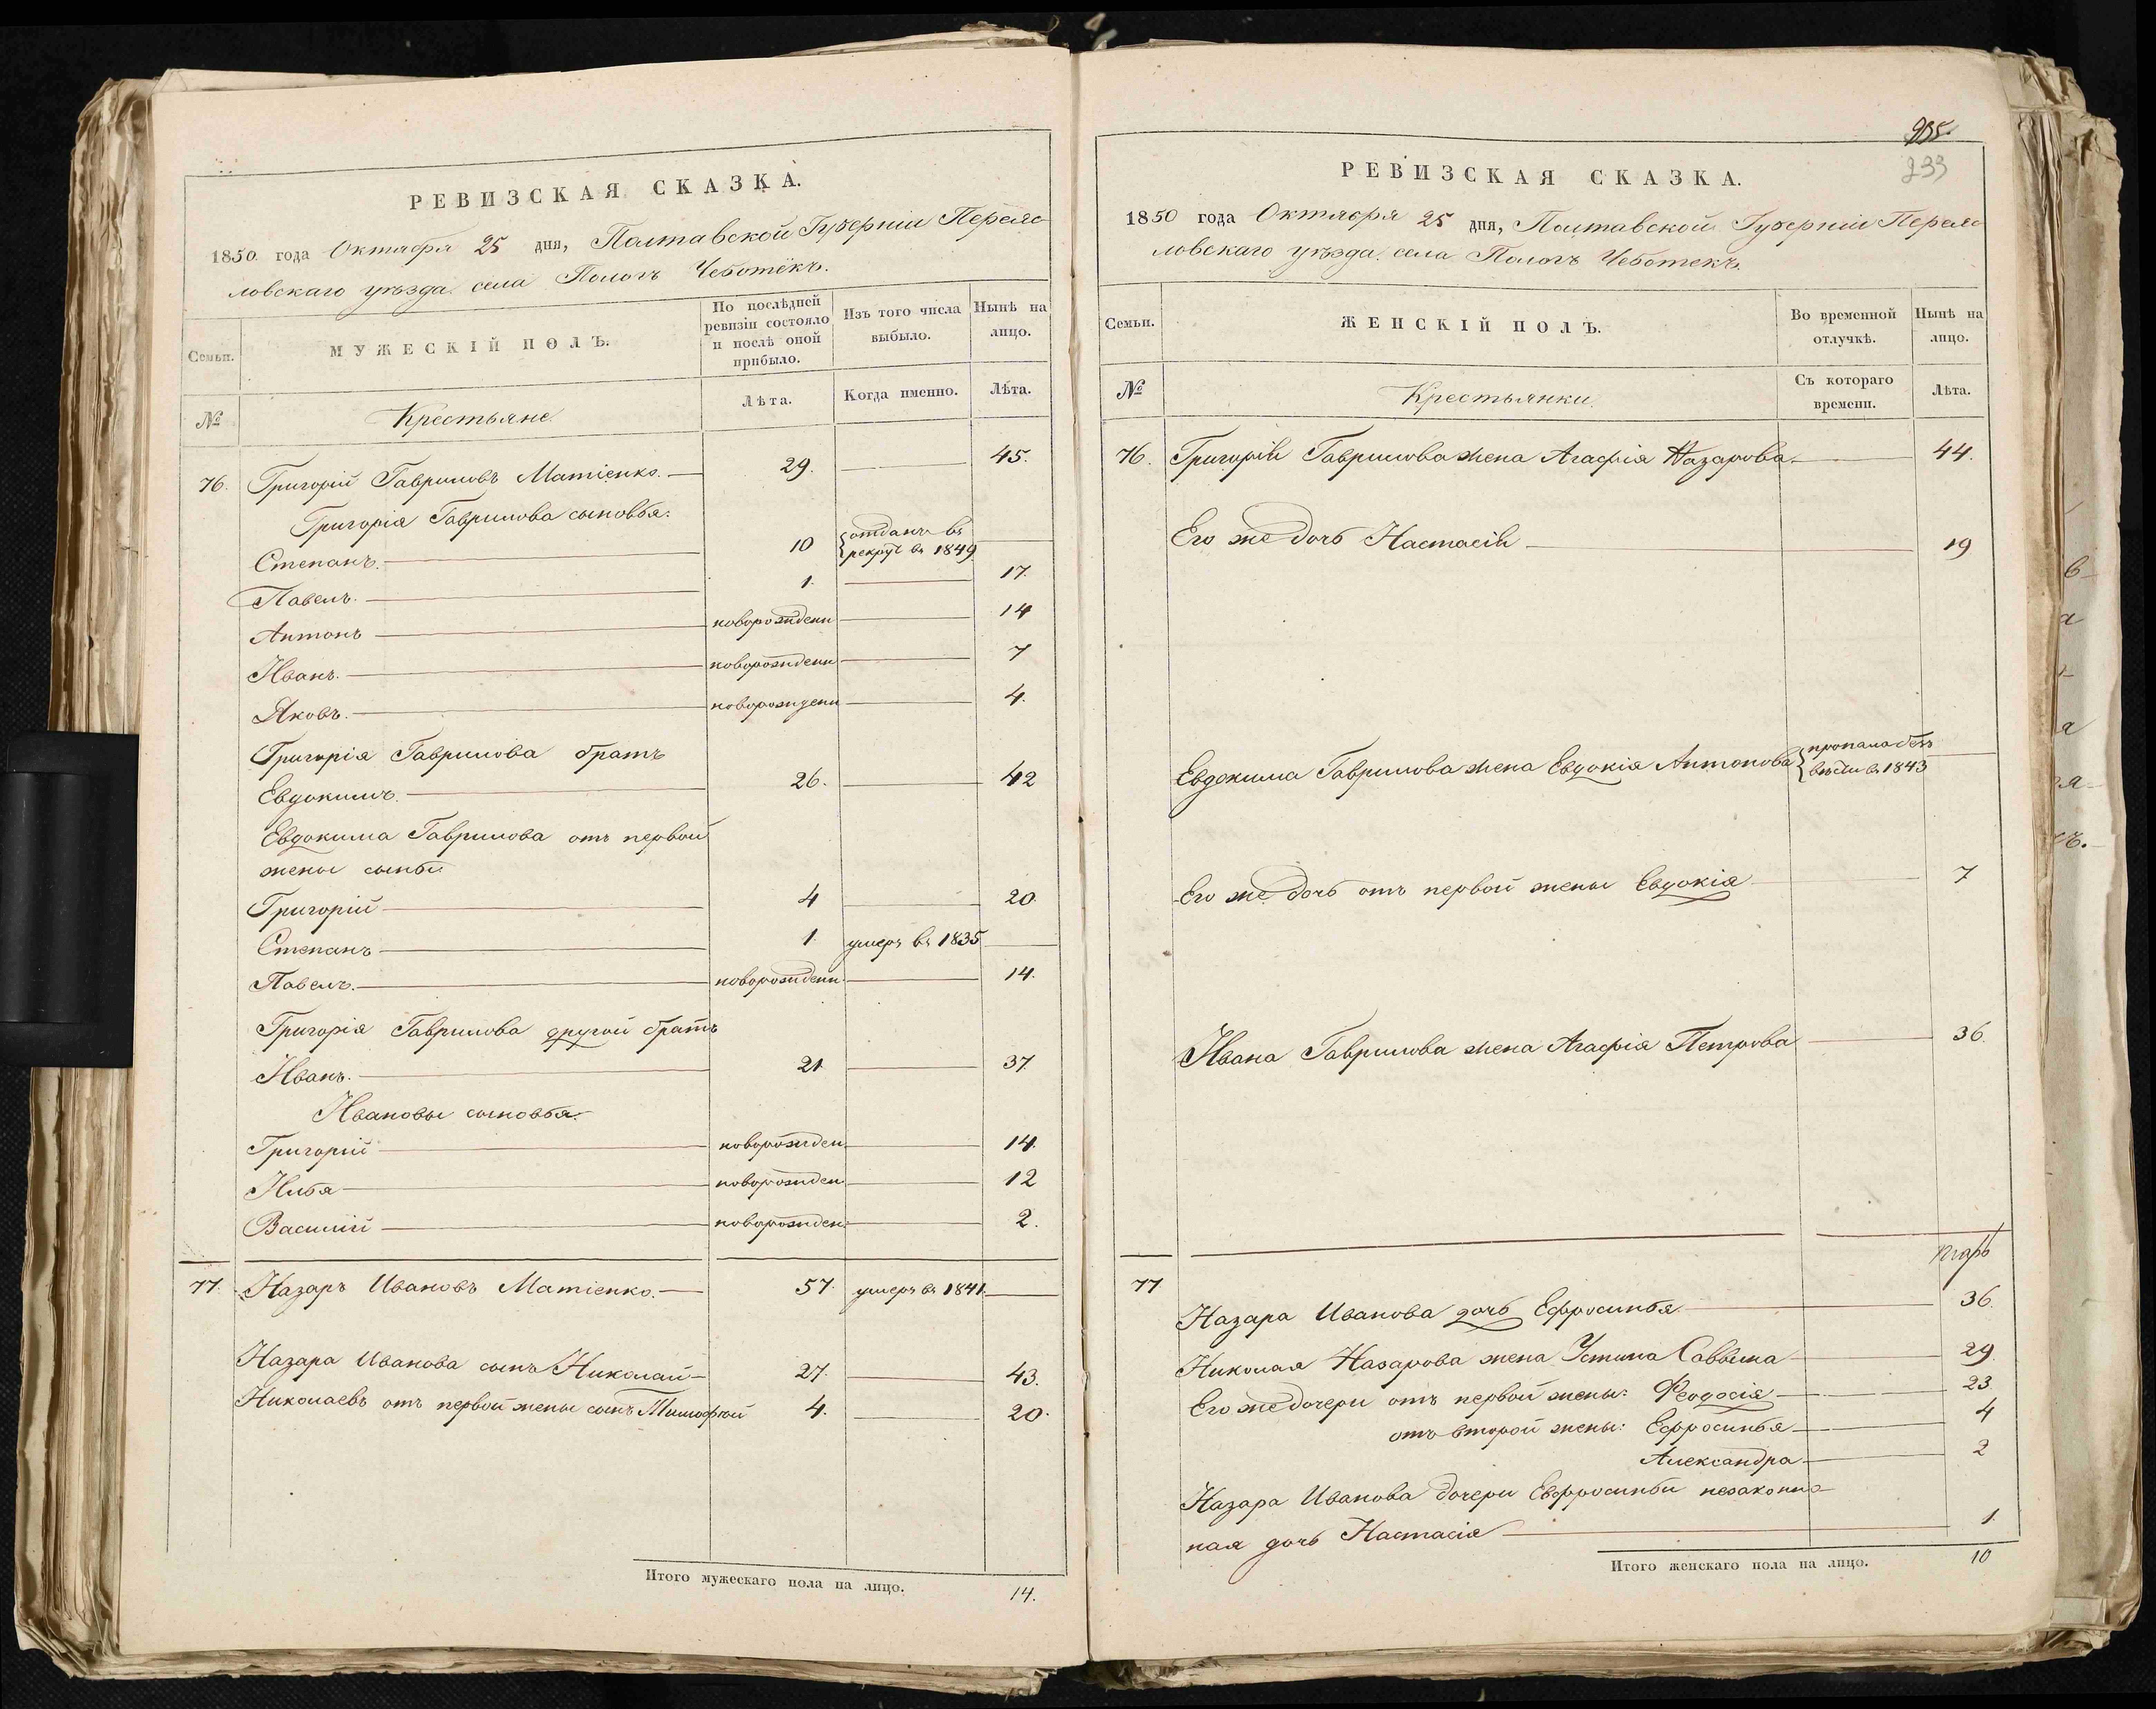 РЕВИЗСКАЯ СКАЗКА.
1850 года Октября 25 дня, Полтавской Губерніи Переяс
ловскаго уѣзда села Пологъ Чеботекъ.
Семьи.
МУЖЕСКІЙ ПОЛЪ.
По послѣдней ревизіи состояло и послѣ оной прибыло.
Изъ того числа выбыло.
Нынѣ на лицо.
№
Крестьяне
Лѣта.
Когда именно.
Лѣта.
76. Григорій Гавриловъ Матіенко. 29. 45.
Григорія Гаврилова сыновья:
Степанъ. 10 отданъ въ рекрут въ 1849
Павелъ. 1. 17.
Антонъ новорожденн 14
Иванъ. новорожденн 7
Яковъ. новорожденн 4.
Григорія Гаврилова братъ
Евдокимъ. 26. 42
Евдокима Гаврилова отъ первой
жены сыновья
Григорій 4 20.
Степанъ 1. умеръ въ 1835
Павелъ. новорожденн. 14.
Григорія Гаврилова другой братъ
Иванъ. 21 37.
Ивановы сыновья:
Григорій новорожден. 14.
Илья новорожден. 12
Василій новорожден. 2.
77. Назаръ Ивановъ Матіенко. 57. умеръ въ 1841.
Назара Иванова сынъ Николай 27. 43.
Николаевъ отъ первой жены сынъ Тимофѣй 4. 20.
Итого мужескаго пола на лицо. 14.
235.
233
РЕВИЗСКАЯ СКАЗКА.
1850 года Октября 25 дня, Полтавской Губерніи Переяс
ловскаго уѣзда села Пологъ Чеботекъ.
Семьи.
ЖЕНСКІЙ ПОЛЪ.
Во временной отлучкѣ.
Нынѣ на лицо.
№
Крестьянки
Съ котораго времени.
Лѣта.
76. Григорія Гаврилова жена Агафія Назарова. 44.
Его же дочь Настасія 19
Евдокима Гаврилова жена Евдокія Антонова пропала безъ вѣсти въ 1843
Его же дочь отъ первой жены Евдокія 7
Ивана Гаврилова жена Агафія Петрова 36.
77
Назара Иванова дочь Ефросинья 36.
Николая Назарова жена Устина Саввина 29.
Его же дочери отъ первой жены: Феодосія 23.
отъ второй жены: Ефросинья 4
Александра 2
Назара Иванова дочери Евфросиньи незаконно
ная дочь Настасія 1.
Итого женскаго пола на лицо. 10